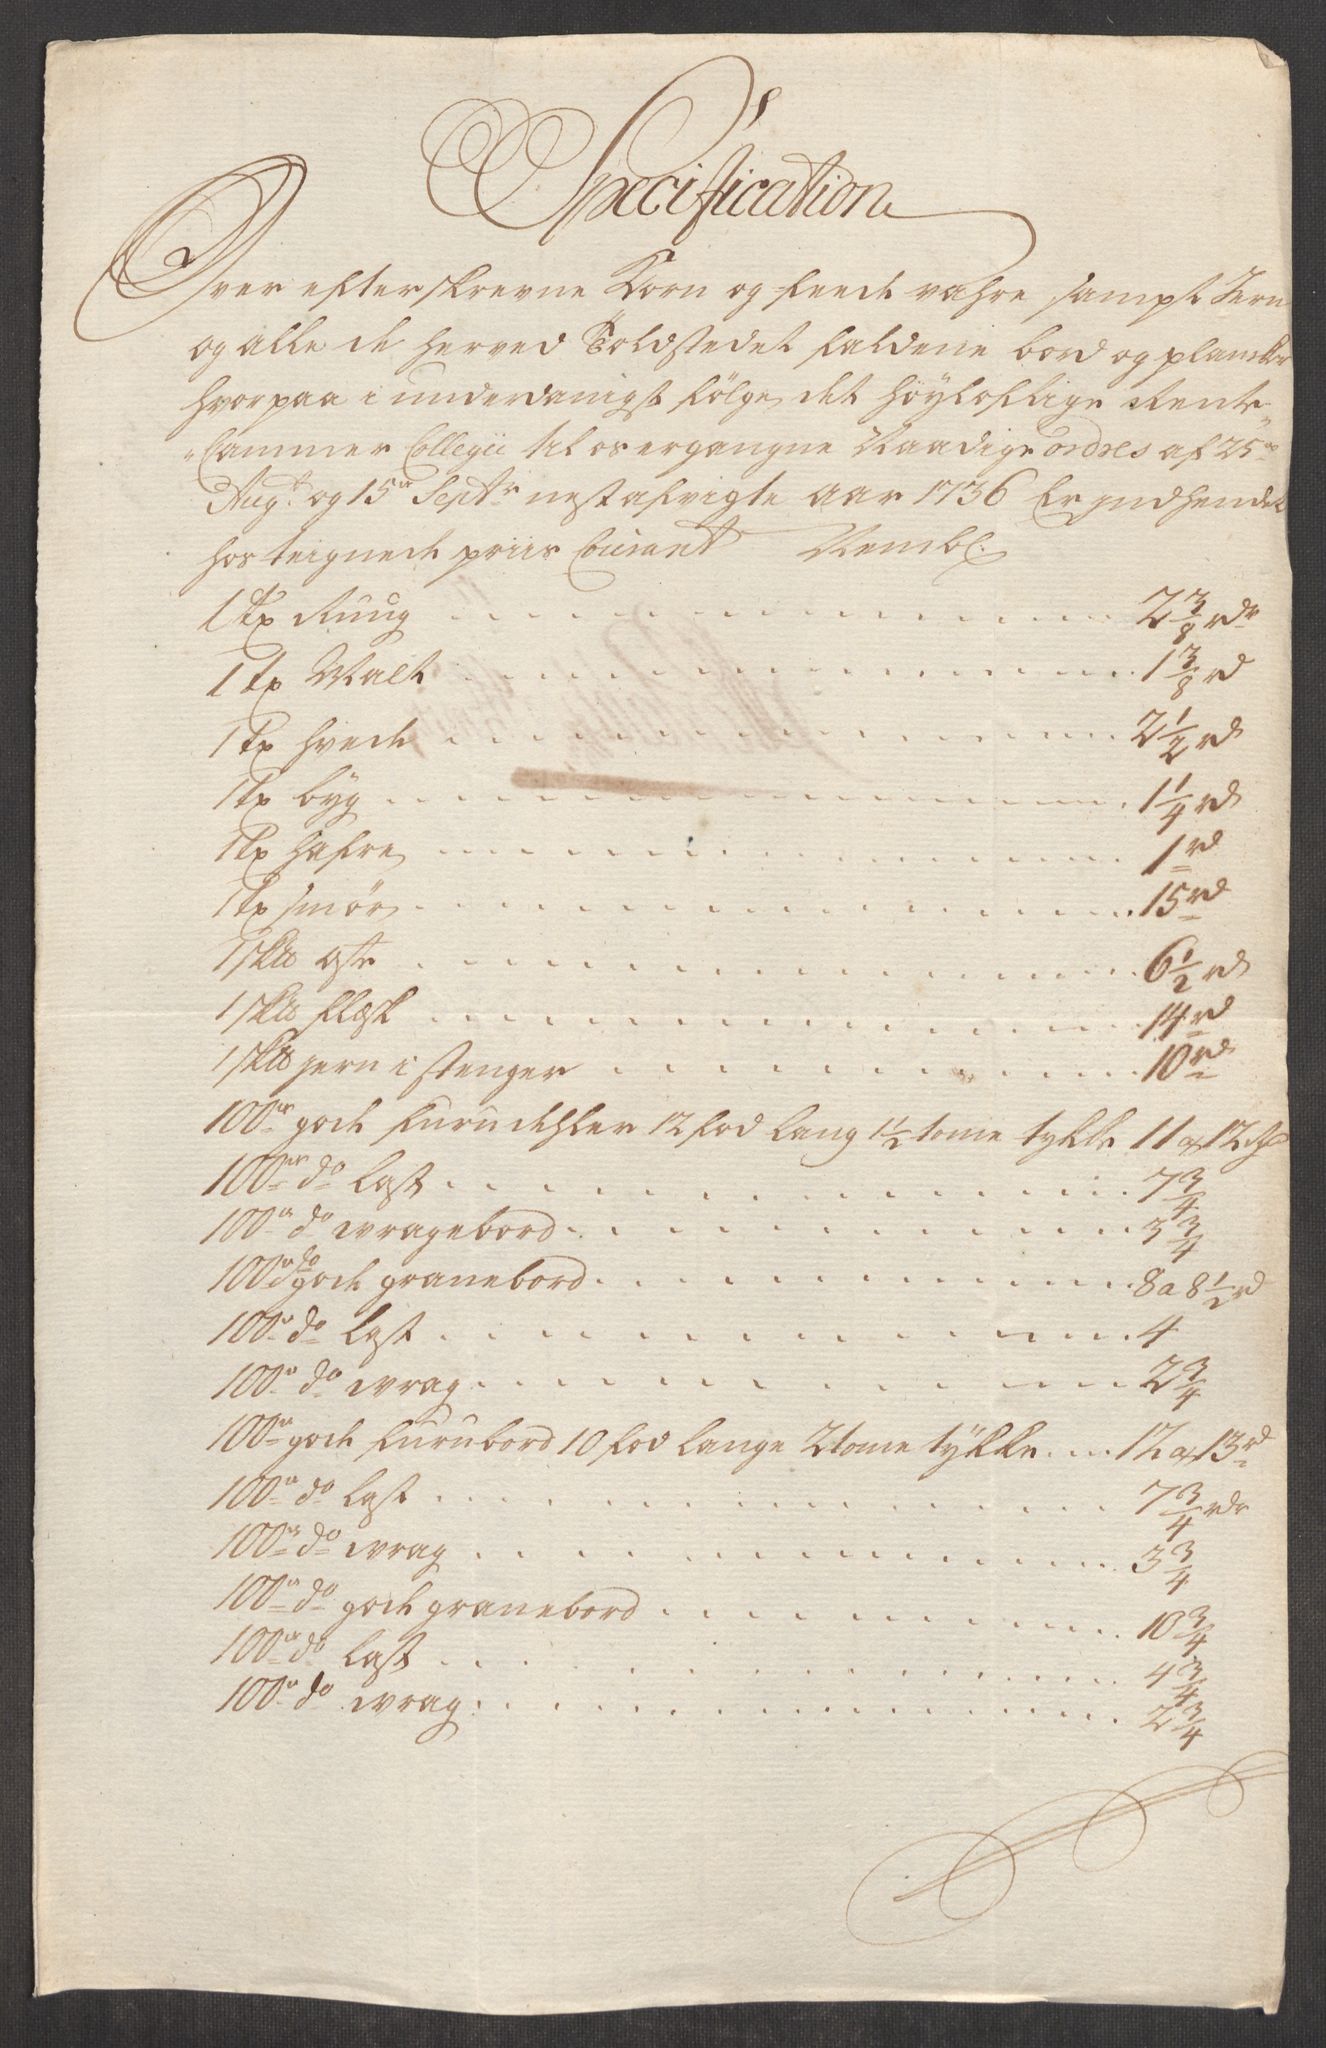 Specification
Over efterskrevne Korn og feede vahre sampt Jern
og alle de herved Toldstedet faldene bord og plancker
hvorpaa i underdanigst fölge det höyloflige Rente
Cammer Collegii til os ergangne Naadige ordres af 25de
Augt og 15de Septr nest afvigte aar 1736 Er indhendet
hosteignede priis Courant Nembl:
1 Tø Ruug 2 3/8 rdr
1 Tø Malt 1 3/8 rd
1 Tø hvede 2 1/2 rd
1 Tø byg 1 1/4 rd
1 Tø hafre 1 rd
1 Tø smør 15 rd
1 sk℔ ost 6 1/2 rd
1 sk℔ flesk 14 rd
1 sk℔ jern i stenger 10 rd
100de gode furu dehler 12 fod lang 1 1/2 tome tykke 11 a 12
100de do last 7 3/4
100de do wragebord 3 3/4
100de do gode granebord 8 a 8 1/2 rd
100de do last 4
100de do wrag 2 3/4
100de gode furubord 10 fod lange 2 tome tykke 12 a 13 rd
100de do last 7 3/4 rdr
100de do wrag 3 3/4
100de do gode granebord 10 3/4
100de do last 4 3/4
100de do wrag 2 3/4